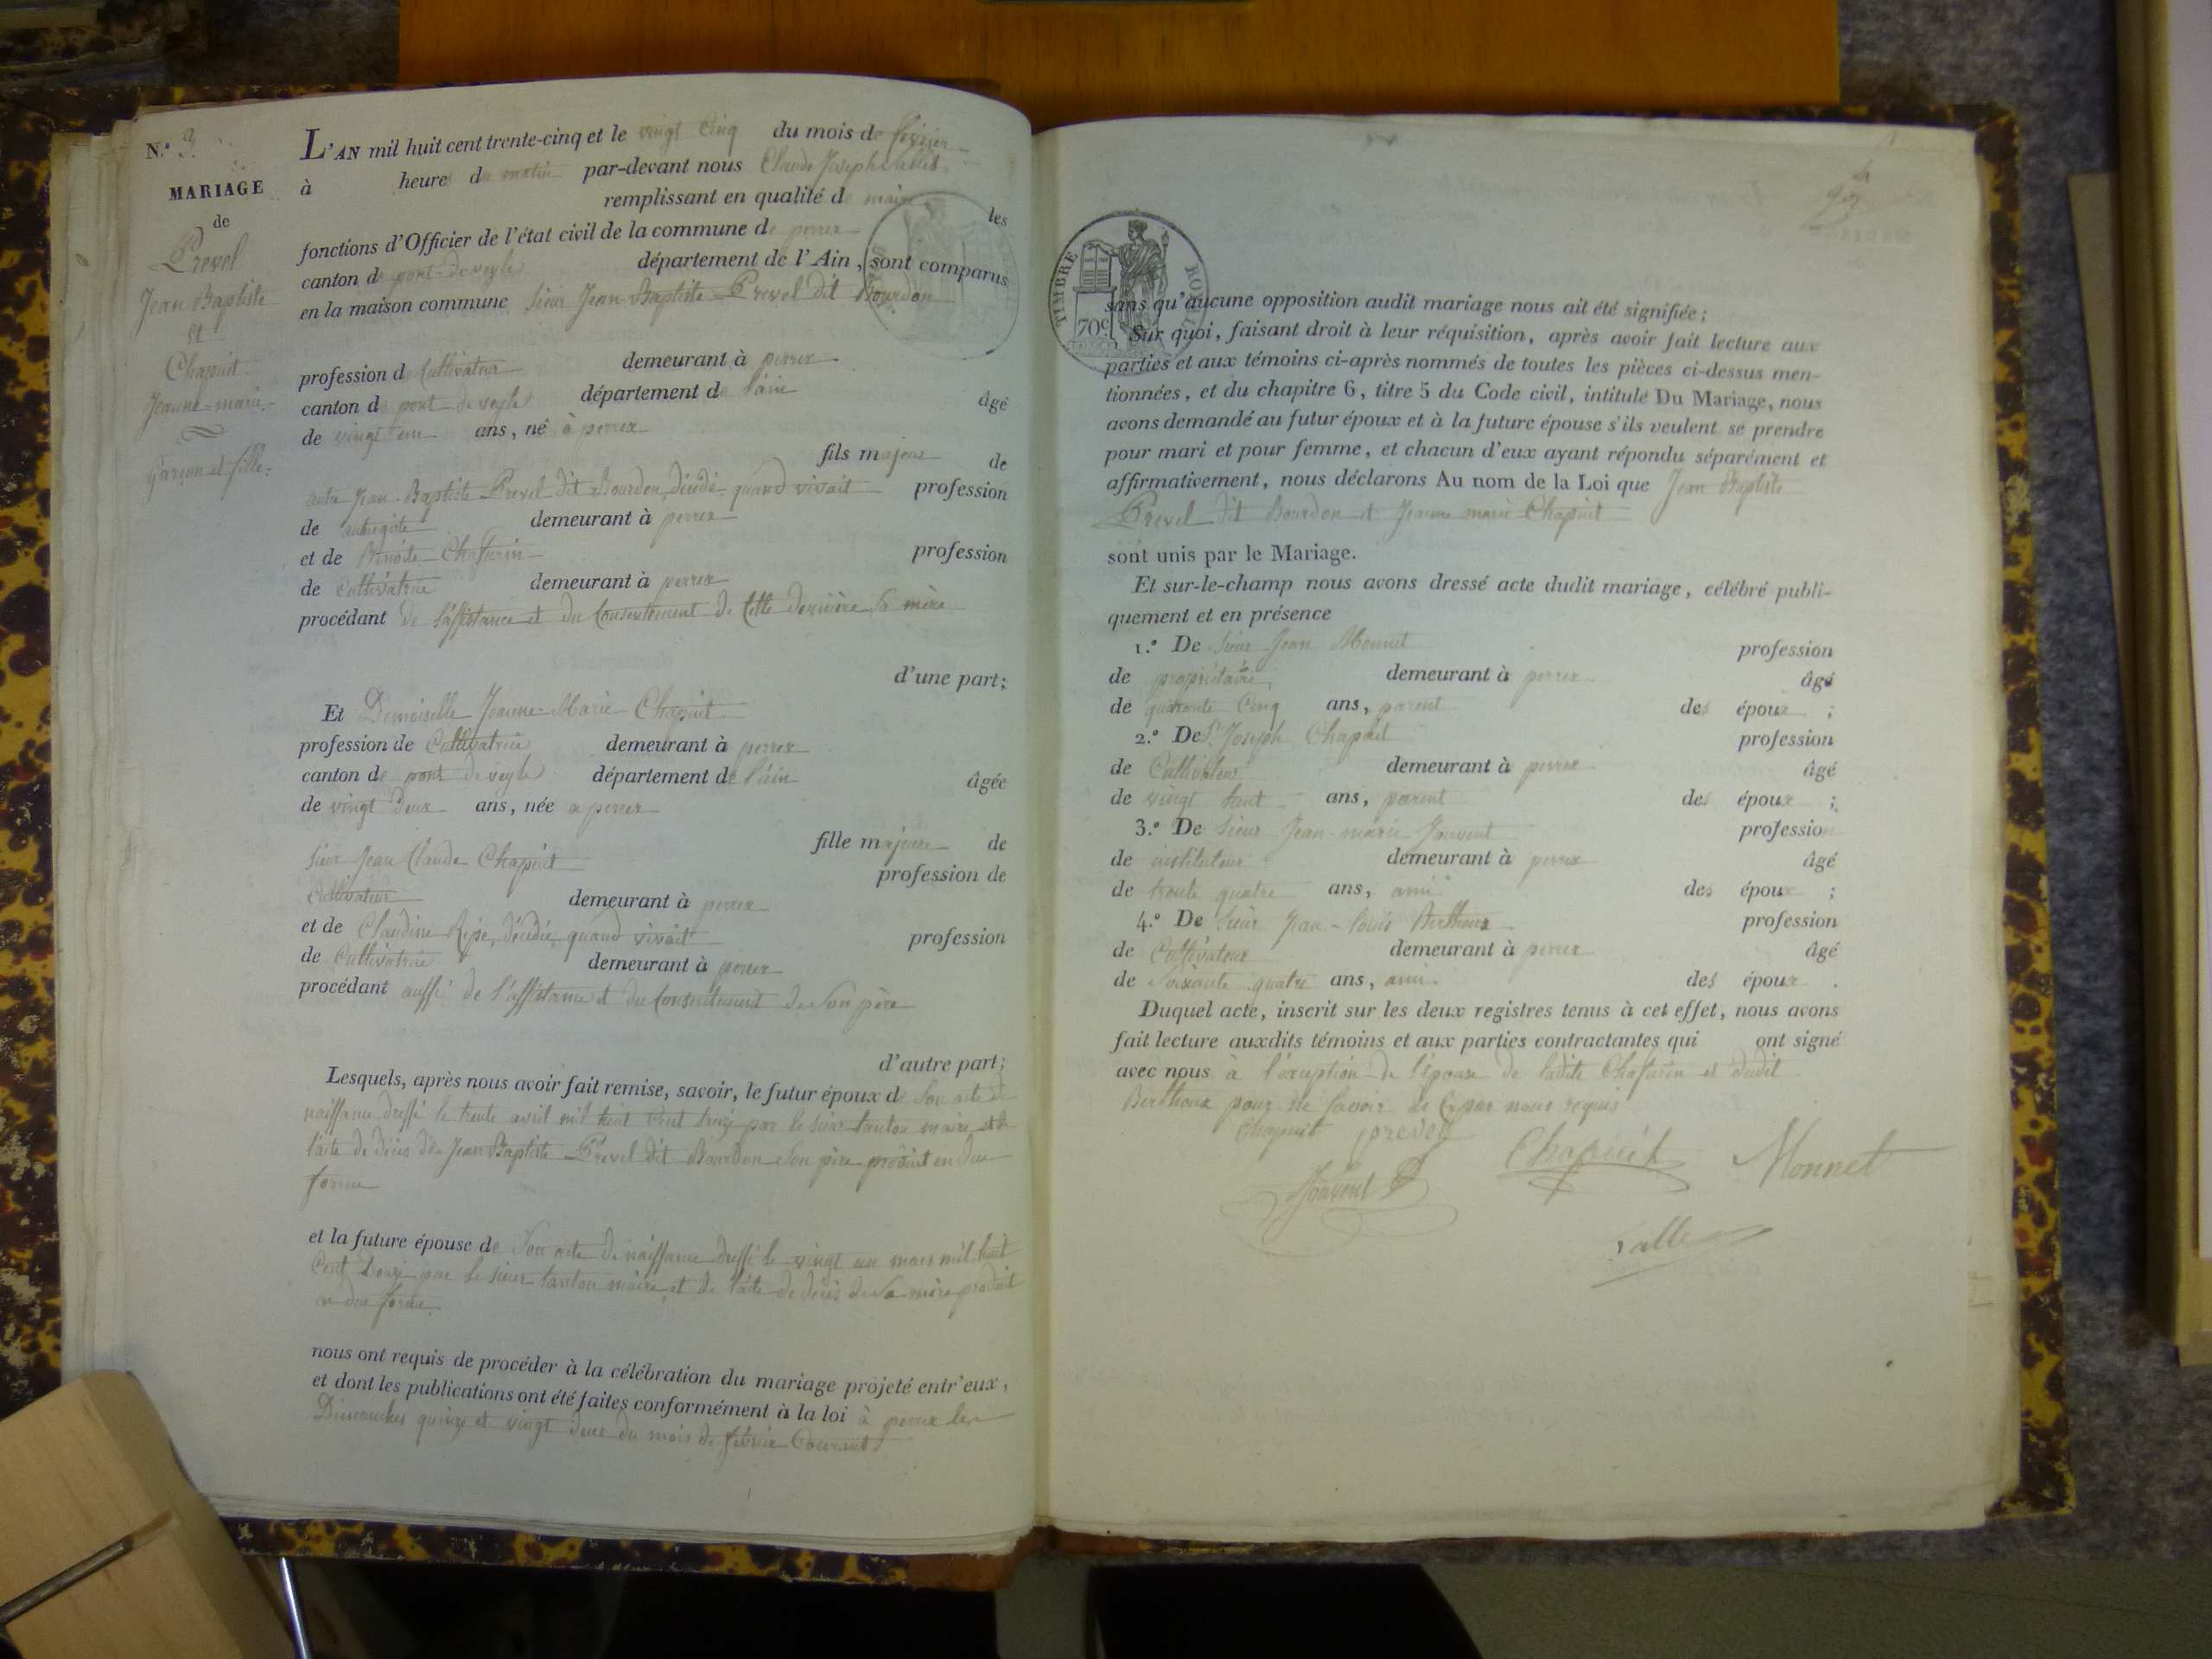 N.º
MARIAGE
de
Prevel
Jean Baptiste
et
Chapuit
Jeanne-marie.
garcon et fille.
L'AN mil huit cent trente-cinq et le vingt Cinq du mois de fevrier
à heures du matin par-devant nous Claude Joseph
remplissant en qualité de maire les
fonctions d'Officier de l'état civil de la commune de perrex
canton de pont-de-veyle département de l'Ain, sont comparus
en la maison commune Sieur Jean-Baptiste Prevel dit Bourdon
profession de Cultivateur demeurant à perrex
canton de pont-de-veyle département de l'ain âgé
de vingt un ans, né à perrex
fils majeur de
autre Jean-Baptiste Prevel dit Bourdon, décédé quand vivait profession
de demeurant à perrex
et de Benoite Chaffurin profession
de Cultivatrice demeurant à perrex
procédant de l'assistance et du Consentement de Cette dernière Sa mère
d'une part;
Et Demoiselle Jeanne-Marie Chapuit
profession de Cultivatrice demeurant à perrex
canton de pont de veyle département de l'ain âgée
de vingt Deux ans, née a perrex
fille majeure de
Sieur Jean Claude Chapuit profession de
Cultivateur demeurant à perrex
et de Claudine Ripe, décédée, quand vivait profession
de Cultivatrice demeurant à perrex
procédant aussi de l'assistance et du Consentement de Son père
d'autre part;
Lesquels, après nous avoir fait remise, savoir, le futur époux de Son acte de
naissance dressé le trente avril mil huit Cent treize par le sieur tanton maire, et de
l'acte de décès de Jean Baptiste Prevel dit Bourdon Son père produit en due
forme
et la future épouse de Son acte de naissance dressé le vingt un mars mil huit
Cent douze par le sieur tanton maire, et de l'acte de décès de Sa mère produit
en due forme.
nous ont requis de procéder à la célébration du mariage projeté entr'eux,
et dont les publications ont été faites conformément à la loi à perrex les
Dimanches quinze et vingt deux du mois de fevrier Courant
TIMBRE ROYAL
70c
sans qu'aucune opposition audit mariage nous ait été signifiée;
Sur quoi, faisant droit à leur réquisition, après avoir fait lecture aux
parties et aux témoins ci-après nommés de toutes les pièces ci-dessus men-
tionnées, et du chapitre 6, titre 5 du Code civil, intitulé Du Mariage, nous
avons demandé au futur époux et à la future épouse s'ils veulent se prendre
pour mari et pour femme, et chacun d'eux ayant répondu séparément et
affirmativement, nous déclarons Au nom de la Loi que Jean Baptiste
Prevel dit Bourdon et Jeanne marie Chapuit
sont unis par le Mariage.
Et sur-le-champ nous avons dressé acte dudit mariage, célébré publi-
quement et en présence
1.º De Sieur Jean Monnet profession
de propriétaire, demeurant à perrex âgé
de quarante Cinq ans, parent des époux ;
2.º De S.r Joseph Chapuit profession
de Cultivateur demeurant à perrex âgé
de vingt ans, parent des époux ;
3.º De Sieur Jean-marie Jouvent profession
de instituteur demeurant à perrex âgé
de trente quatre ans, ami des époux ;
4.º De Sieur Jean-Louis Berthoux profession
de Cultivateur demeurant à perrex âgé
de Soixante quatre ans, ami. des époux .
Duquel acte, inscrit sur les deux registres tenus à cet effet, nous avons
fait lecture auxdits témoins et aux parties contractantes qui ont signé
avec nous à l'exception de l'épouse de ladite Chaffurin et dudit
Berthoux pour ne Savoir de Ce par nous requis
Chapuit prevel Chapuit Monnet
Jouvent